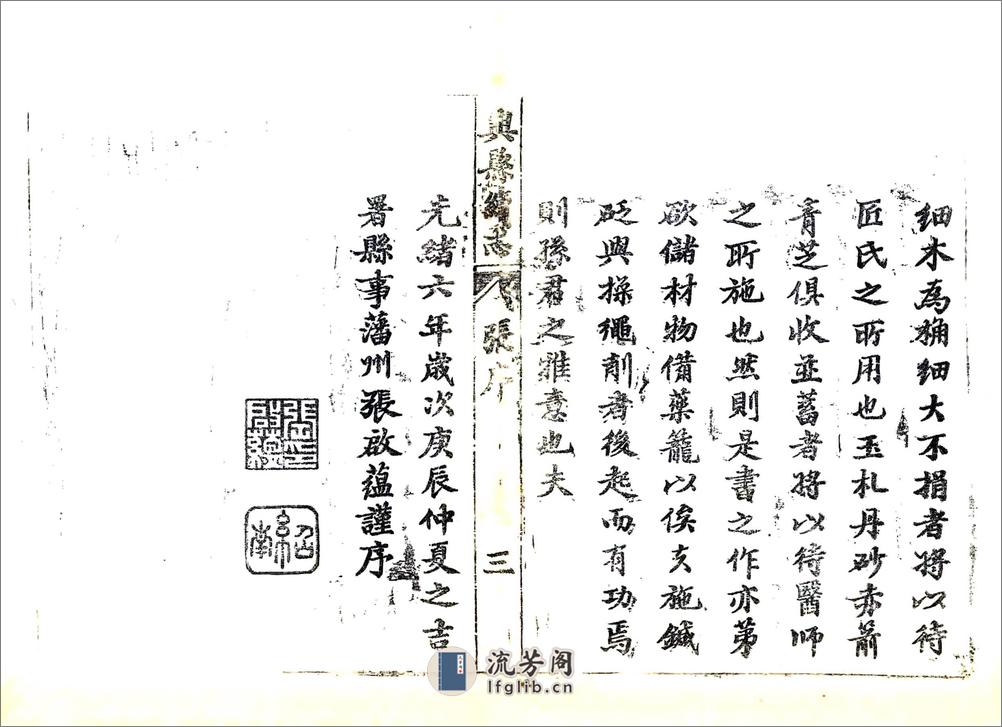 細木為桷細大不捐者將以待
匠氏之所用也玉札丹砂赤箭
青芝俱收並蓄者將以待醫師
之所施也然則是書之作亦第
欲儲材物備藥籠以俟夫施鍼
砭與操繩削者後起而有功焉
則孫君之雅意也夫
興縣續志
張序
三
光緒六年歲次庚辰仲夏之吉
署縣事藩州張啟蘊謹序
張啟蘊印
紹南
流芳阁
lfglib.cn